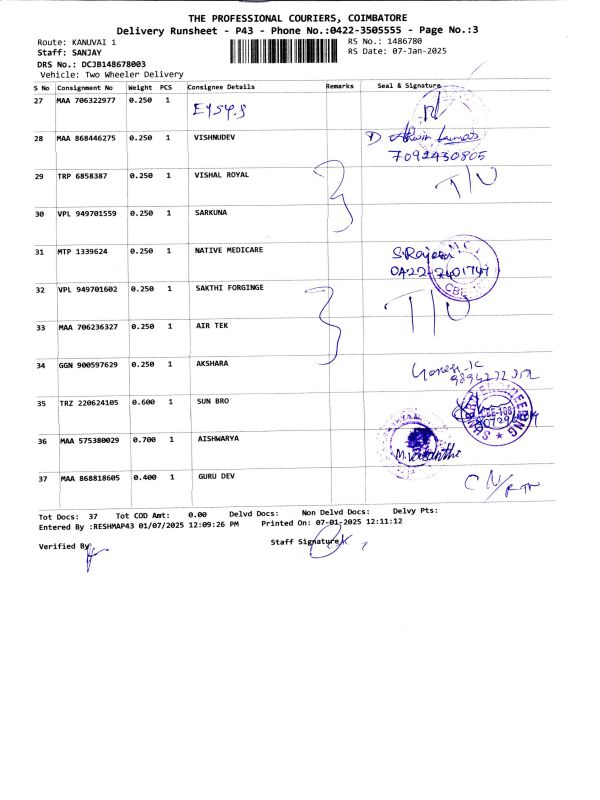 THE PROFESSIONAL COURIERS, COIMBATORE
Delivery Runsheet - P43 - Phone No.:0422-3505555 - Page No.:3
Route: KANUVAI 1 RS No.: 1486780
Staff: SANJAY RS Date: 07-Jan-2025
DRS No.: DCJB148678003
Vehicle: Two Wheeler Delivery
S No Consignment No Weight PCS Consignee Details Remarks Seal & Signature
27 MAA 706322977 0.250 1
28 MAA 868446275 0.250 1 VISHNUDEV D
7092430805
29 TRP 6858387 0.250 1 VISHAL ROYAL
30 VPL 949701559 0.250 1 SARKUNA
31 MTP 1339624 0.250 1 NATIVE MEDICARE S.Rajesh
32 VPL 949701602 0.250 1 SAKTHI FORGINGE
33 MAA 706236327 0.250 1 AIR TEK
34 GGN 900597629 0.250 1 AKSHARA
35 TRZ 220624105 0.600 1 SUN BRO
36 MAA 575380029 0.700 1 AISHWARYA M.Vasantha
37 MAA 868818605 0.400 1 GURU DEV
Tot Docs: 37 Tot COD Amt: 0.00 Delvd Docs: Non Delvd Docs: Delvy Pts:
Entered By :RESHMAP43 01/07/2025 12:09:26 PM Printed On: 07-01-2025 12:11:12
Verified By Staff Signature